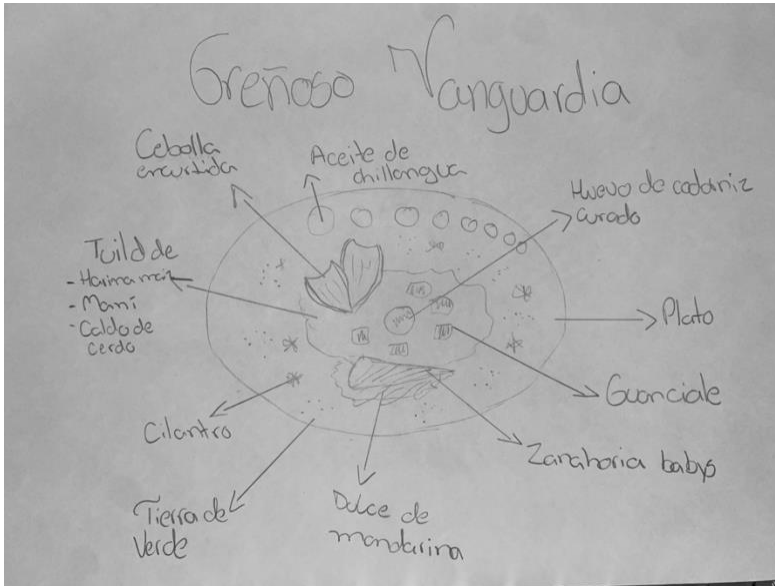 Greñoso Vanguardia
Cebolla
encurtida
Aceite de
chillangua
Huevo de codorniz
curado
Tuild de
- Harina maiz
- Maní
- Caldo de
cerdo
Plato
Guanciale
Cilantro
Zanahoria babys
Tierra de
Verde
Dulce de
mandarina